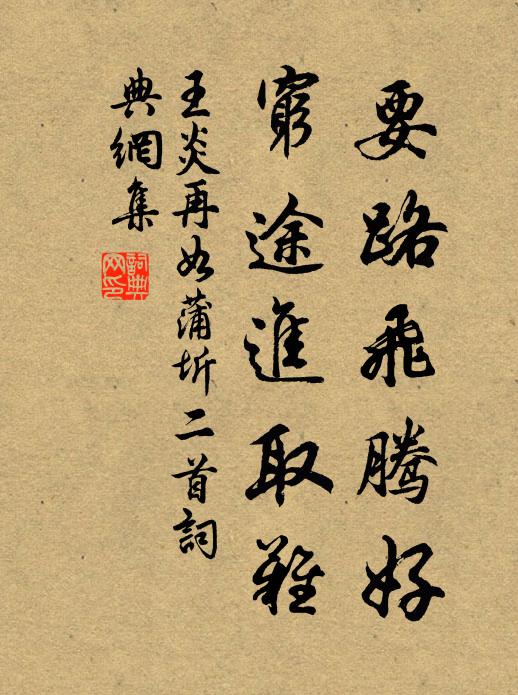 要路飛騰好
窮途進取難
王炎再如蒲圻二首詞
典網集
詞典網印